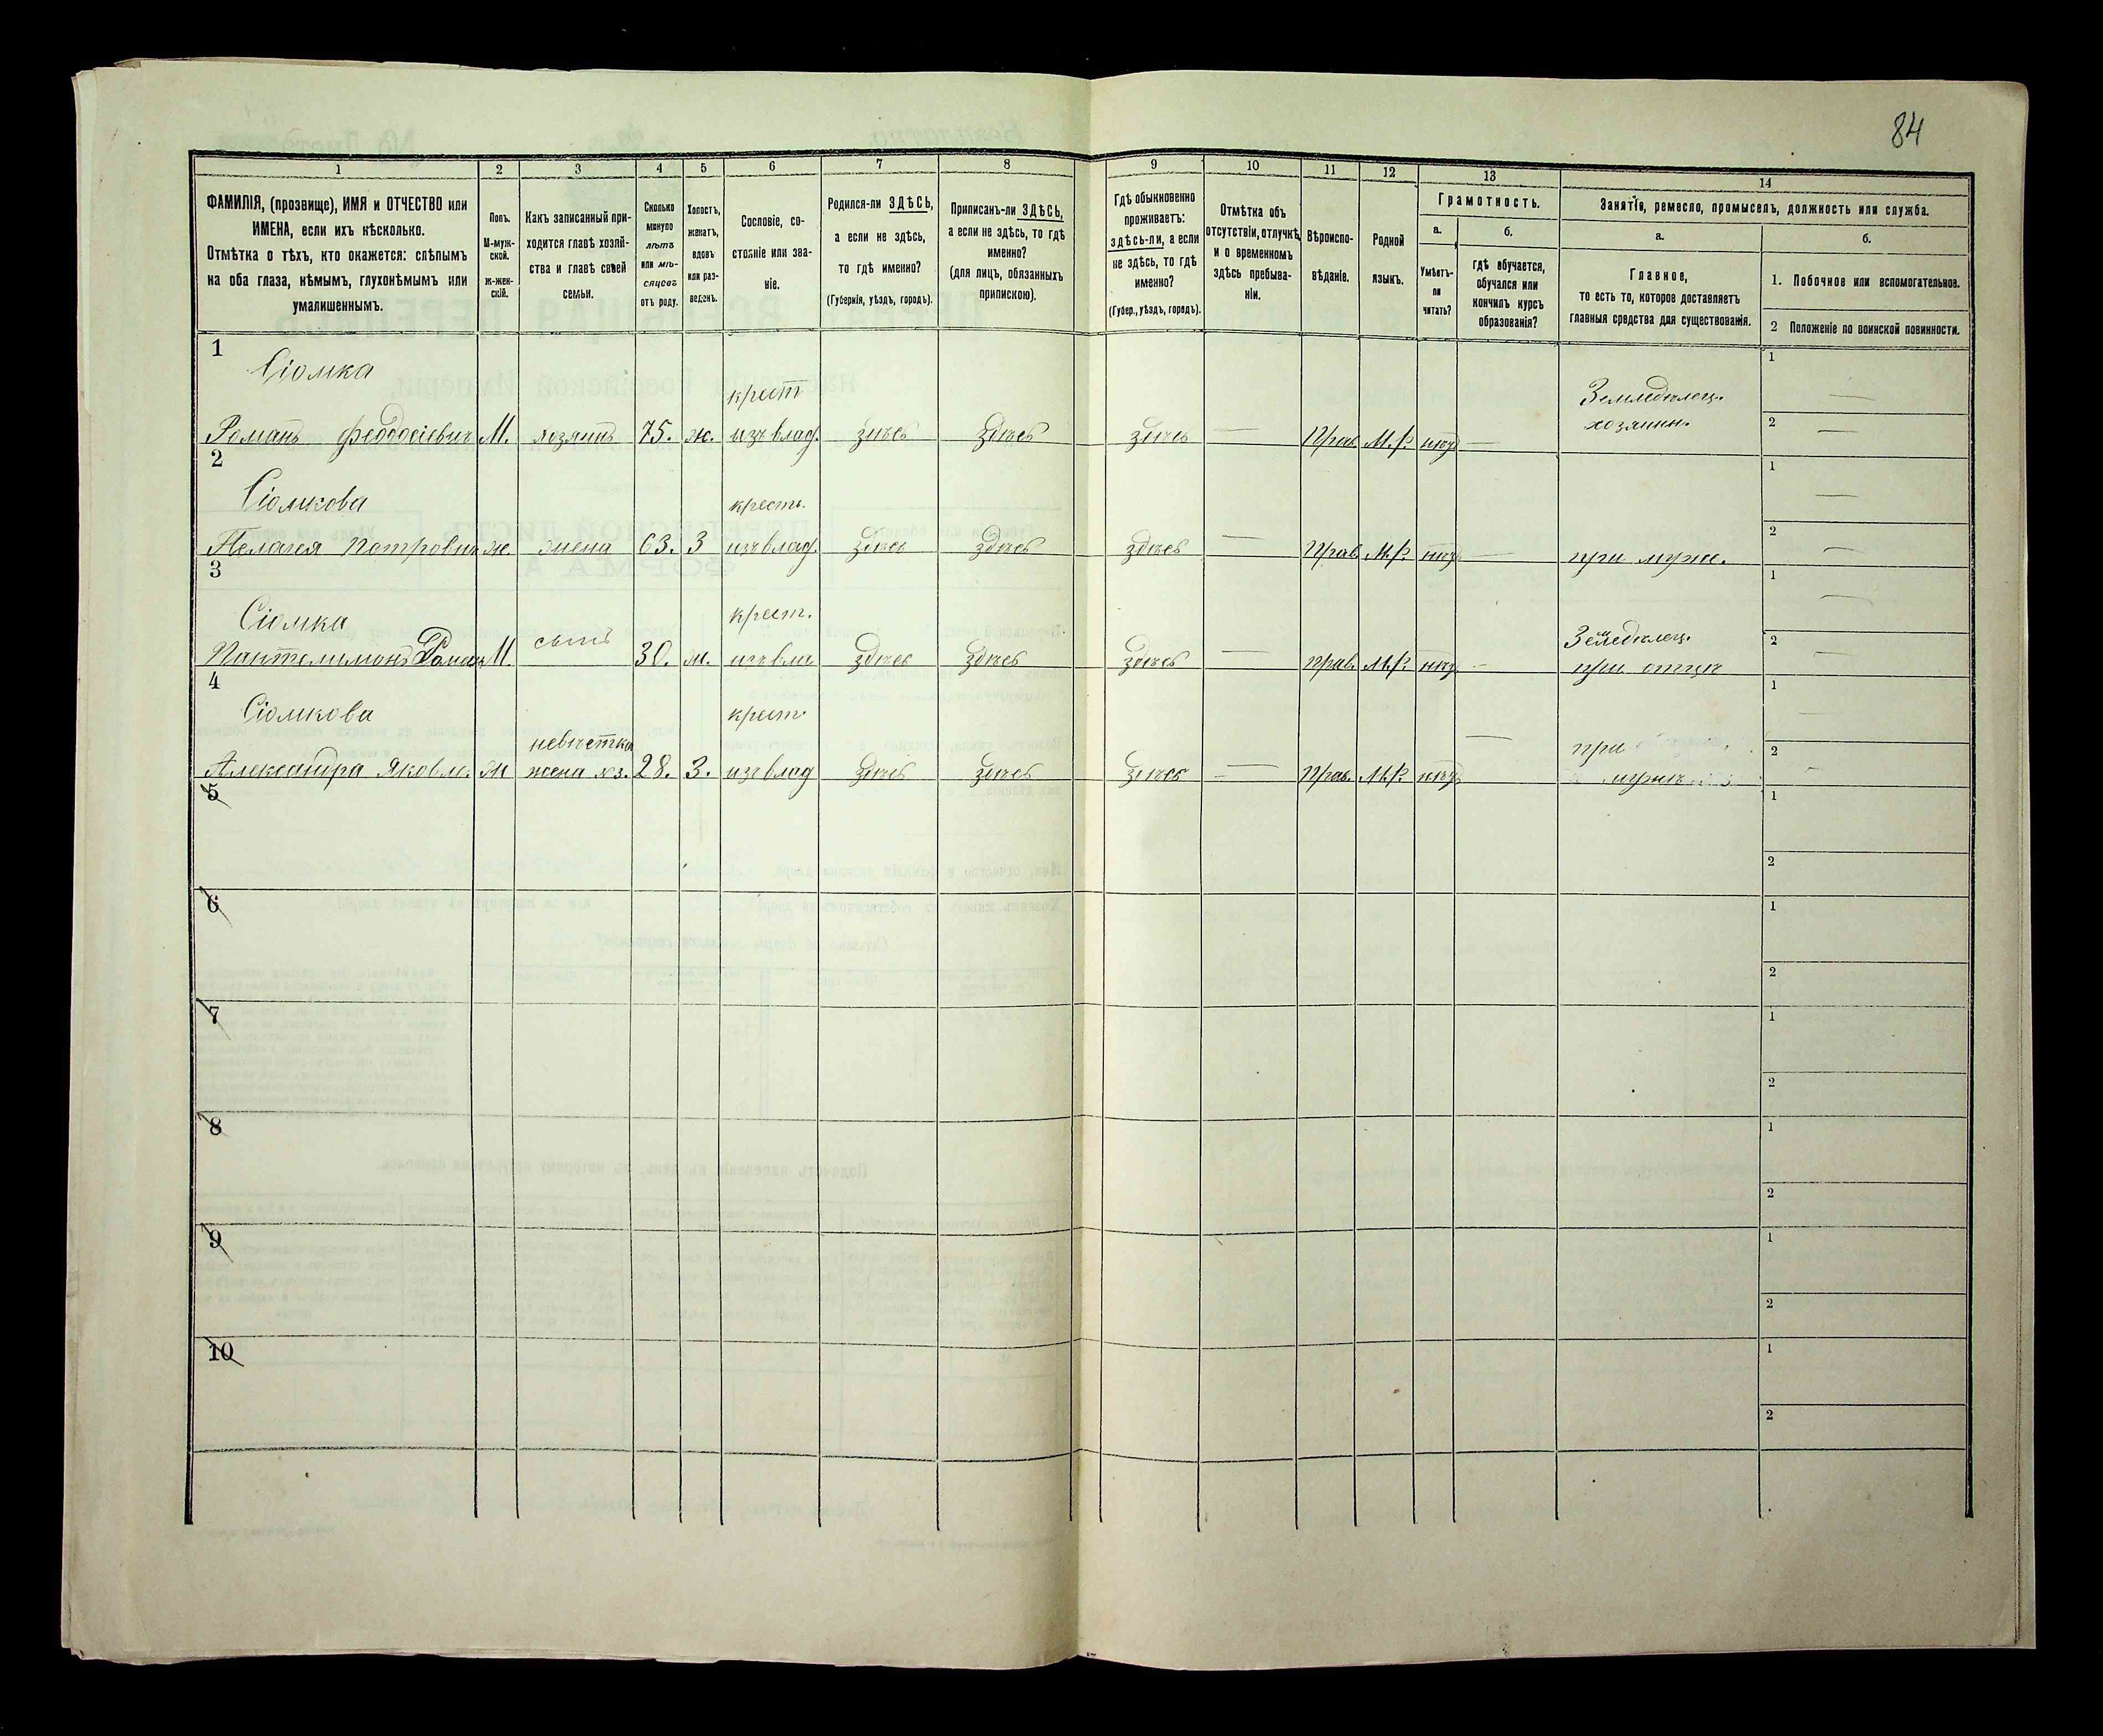 84
1 2 3 4 5 6 7 8 9 10 11 12 13 14
ФАМИЛІЯ, (прозвище), ИМЯ и ОТЧЕСТВО или
ИМЕНА, если ихъ нѣсколько.
Отмѣтка о тѣхъ, кто окажется: слѣпымъ
на оба глаза, нѣмымъ, глухонѣмымъ или
умалишеннымъ.
Полъ.
М-муж-
ской.
Ж-жен-
скій.
Какъ записанный при-
ходится главѣ хозяй-
ства и главѣ своей
семьи.
Сколько
минуло
лѣтъ
или мѣ-
сяцевъ
отъ роду.
Холостъ,
женатъ,
вдовъ
или раз-
веденъ.
Сословіе, со-
стояніе или зва-
ніе.
Родился-ли ЗДѢСЬ,
а если не здѣсь,
то гдѣ именно?
(Губернія, уѣздъ, городъ).
Приписанъ-ли ЗДѢСЬ,
а если не здѣсь, то гдѣ
именно?
(для лицъ, обязанныхъ
припискою).
Гдѣ обыкновенно
проживаетъ:
здѣсь-ли, а если
не здѣсь, то гдѣ
именно?
(Губер., уѣздъ, городъ).
Отмѣтка объ
отсутствіи, отлучкѣ
и о временномъ
здѣсь пребыва-
ніи.
Вѣроиспо-
вѣданіе.
Родной
языкъ.
Грамотность.
а.
Умѣетъ-
ли
читать?
б.
гдѣ обучается,
обучался или
кончилъ курсъ
образованія?
Занятіе, ремесло, промыселъ, должность или служба.
а.
Главное,
то есть то, которое доставляетъ
главныя средства для существованія.
б.
1. Побочное или вспомогательное.
2 Положеніе по воинской повинности.
1
Сіомка крест Земледѣлец. 1 —
Романъ Феодосіевич М. хозяинъ 75. ж. изъ влад. здѣсь здѣсь здѣсь — Прав. М.Р. нѣт — хозяин. 2 —
2
Сіомкова крест. 1 —
Пелагея Петровн ж. жена 63. З изъ влад. здѣсь здѣсь здѣсь — Прав. М.Р. нѣт — при муж. 2 —
3
Сіомка крест. Земледѣлец. 1 —
Пантелимонъ Роман М. сынъ 30. ж. изъ вла здѣсь здѣсь здѣсь — прав. М.Р. нѣт - при отцѣ 2 —
4
Сіомкова невѣстка крест. — при 1 —
Александра Яковле. ж жена хоз. 28. З. изъ влад здѣсь здѣсь здѣсь — Прав. М.Р. нѣт мужѣ 2 -
5 1
2
6 1
2
7 1
2
8 1
2
9 1
2
10 1
2